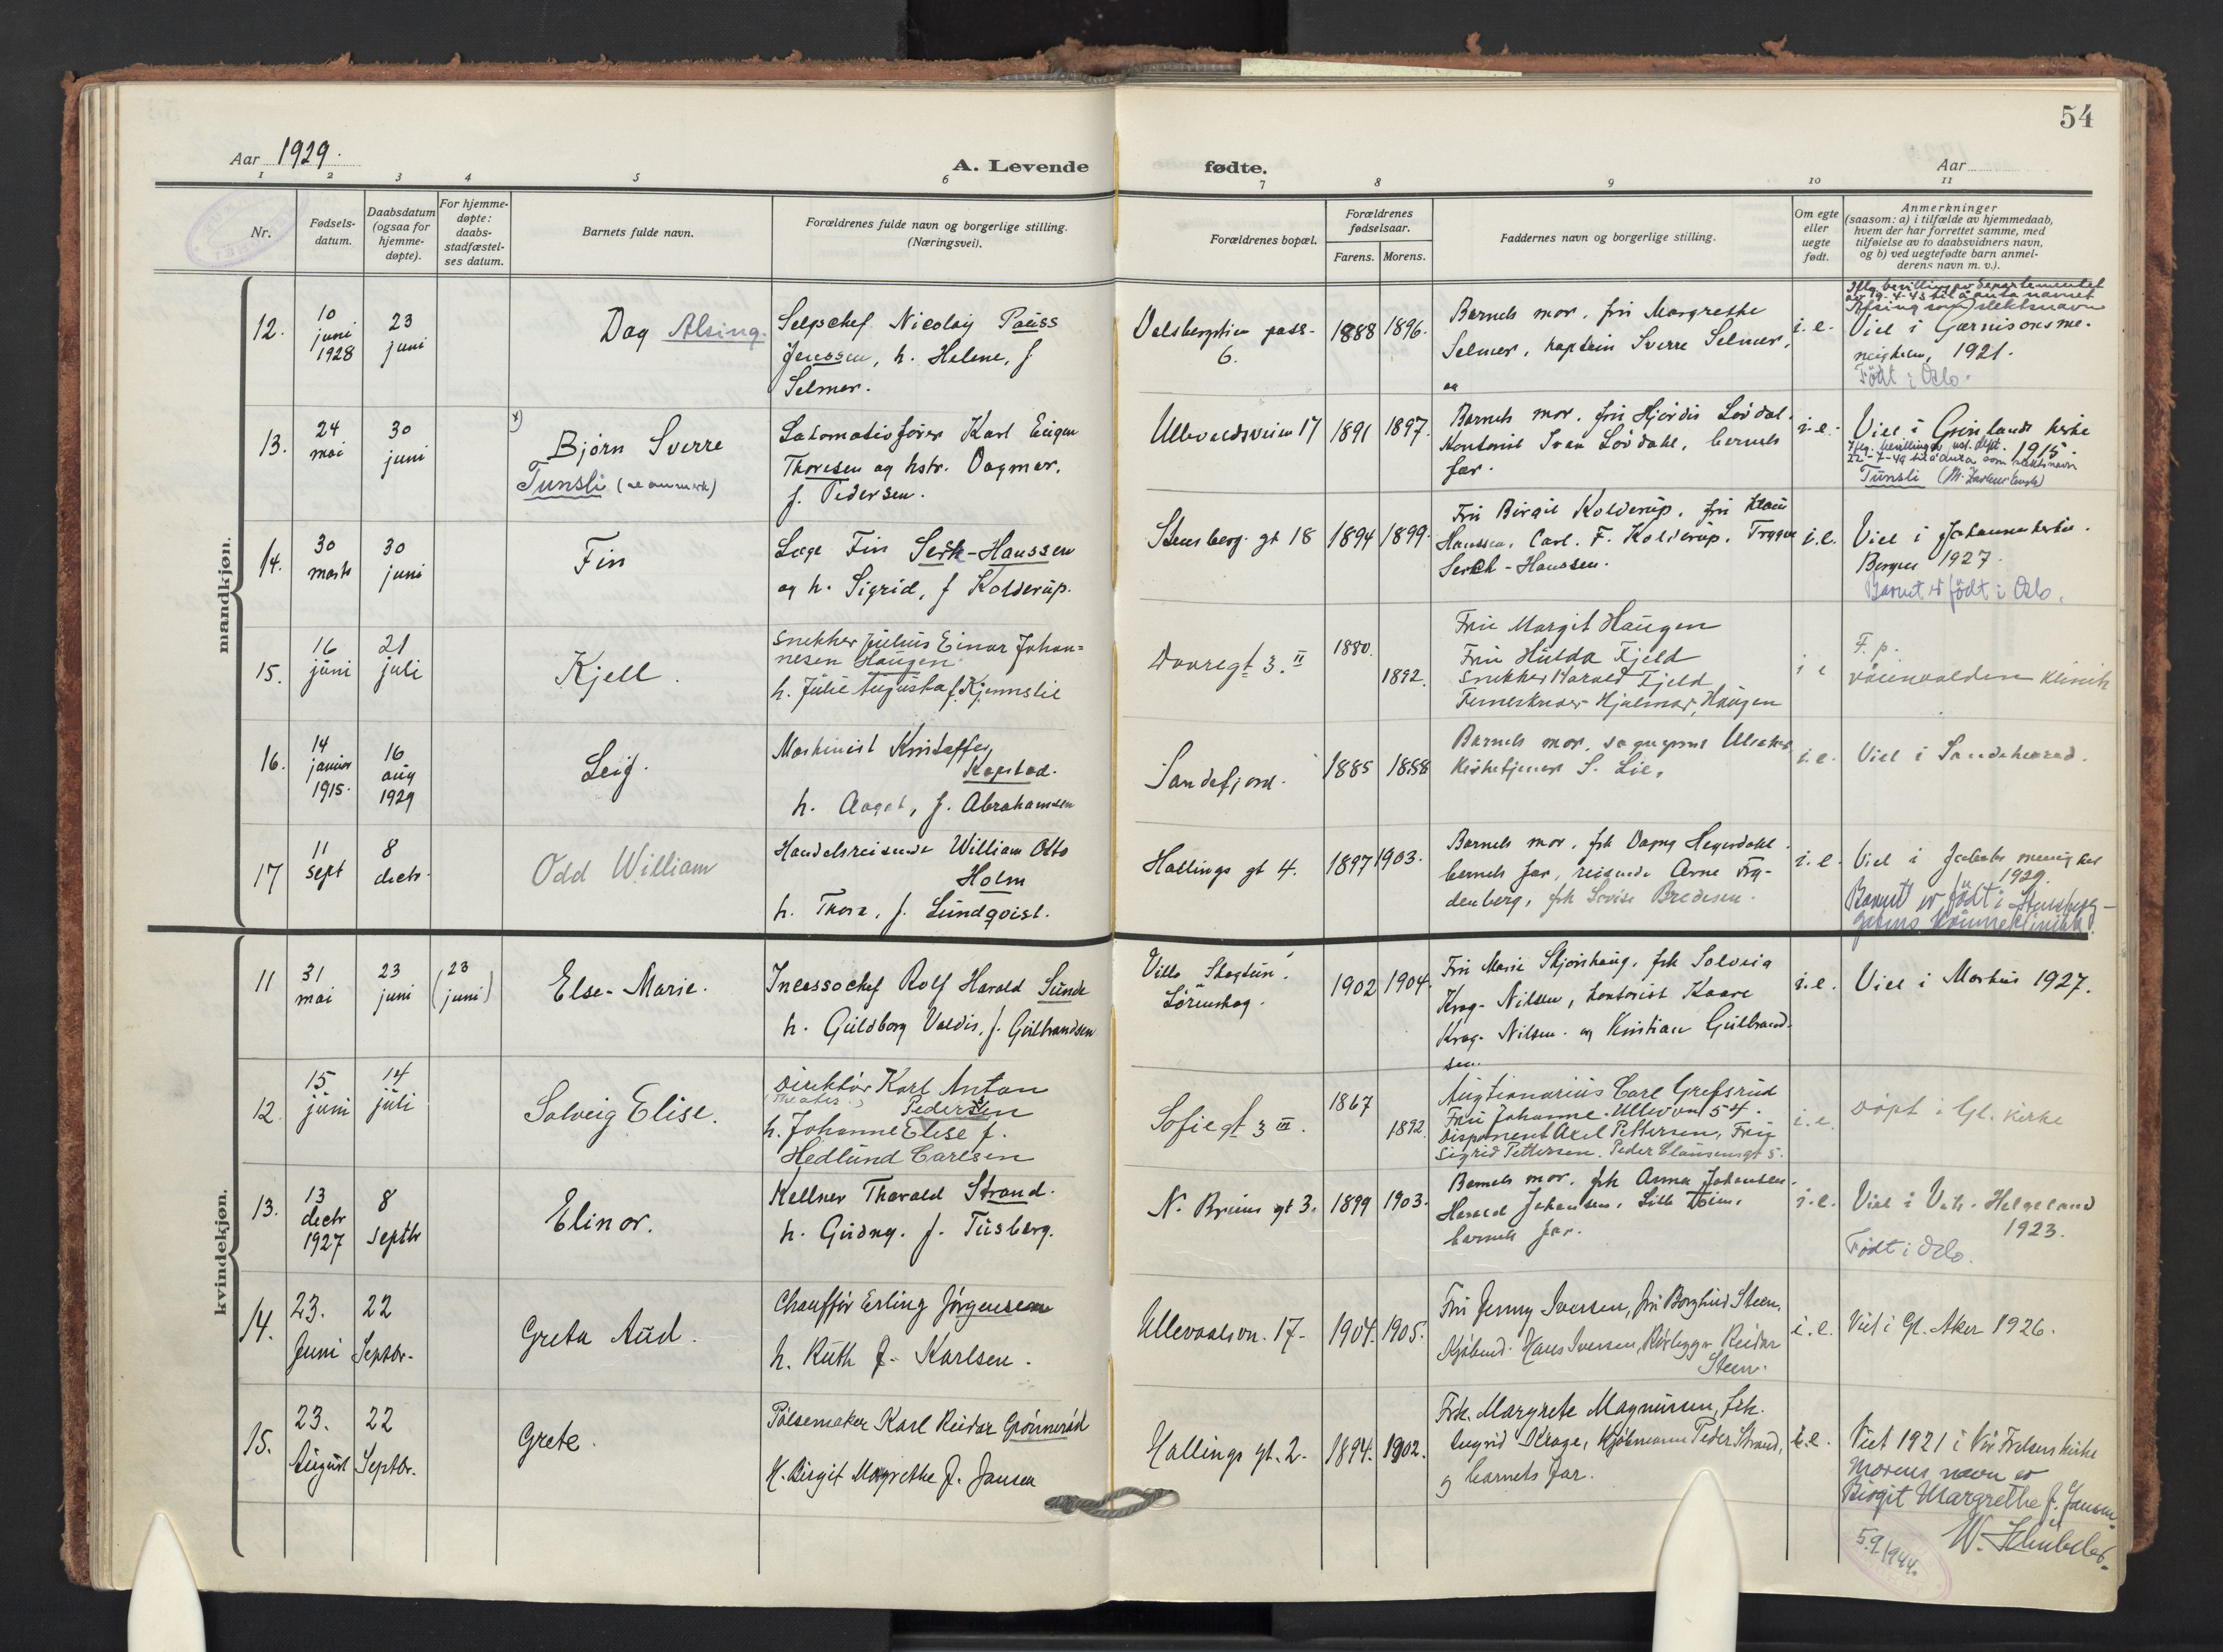 54
Aar 1929.
A. Levende
fødte.
Aar
1 2 3 4 5 6 7 8 9 10 11
Nr.
Fødsels-
datum.
Daabsdatum
(ogsaa for
hjemme-
døpte).
For hjemme-
døpte:
daabs-
stadfæstel-
ses datum.
Barnets fulde navn.
Forældrenes fulde navn og borgerlige stilling.
(Næringsvei).
Forældrenes bopæl.
Forældrenes
fødselsaar.
Farens. Morens.
Faddernes navn og borgerlige stilling.
Om egte
eller
uegte
født.
Anmerkninger
(saasom: a) i tilfælde av hjemmedaab,
hvem der har forrettet samme, med
tilføielse av to daabsvidners navn,
og b) ved uegtefødte barn anmel-
derens navn m. v.).
mandkjøn.
12.
10
juni
1928
23
juni
Dag Alsing.
Selpschef Nicolay Pauss
Jenssen, h. Helene, f
Selmer.
6.
1888 1896.
Barnets mor, fru Margrethe
Selmer, kaptein Sverre Selmer,
og
i.e.
Iflg. bevilling av departementet
av 19-4-43 til å anta navnet
Alsing som slektsnavn
Viet i Garnisonsme-
nigheten, 1921.
Født i Oslo.
13.
24
mai
30
juni
x)
Bjørn Sverre
Tunsli (se anmerk)
Lokomotivfører Karl Eugen
Thoresen og hstr. Dagmar,
f. Pedersen.
Ullevaldsveien 17
1891 1897.
Barnets mor, fru Hjørdis Løvdal.
Kontorist Sven Løvdahl, barnets
far.
i.e.
Viet i Grønlands kirke
1915.
22-7-49 til å anta som slektsnavn
Tunsli
14.
30
marts
30
juni
Fin
Læge Fin Serk-Hanssen
og h. Sigrid, f Kolderup.
Stensberg. gt 18
1894 1899.
Fru Birgit Kolderup, fru Klara
Hanssen, Carl. F. Kolderup, Trygve
Serck-Hanssen.
i.e.
Viet i Johanneskirken.
Bergen 1927.
Barnet er født i Oslo.
15.
16
juni
21
juli
Kjell.
Snekker Julius Einar Johan=
nesen Haugen
h. Julie Augusta f. Kjennslie
Dovregt 3. II
1880.
1892.
Fru Margit Haugen
Fru Hulda Fjeld
Snekker Harald Fjeld
Hjalmar Haugen
i e
F. p.
klinik
16.
14
januar
1915.
16
aug
1929
Leif.
Maskinist Kristoffer
Kopstad.
h. Aagot, f. Abrahamsen
Sandefjord.
1885 1888
Barnets mor,
Kirketjener S. Lie,
i.e.
Viet i Sandeherred.
17
11
sept
8
decbr.
Odd William
Handelsreisende William Otto
Holm
h. Thora, f. Lundqvist.
Hallings gt 4.
1897 1903.
Barnets mor, frk Dagny Hegerdahl
barnets far, reisende Arne Fry-
denberg, frk Lovise Bredesen.
i.e.
Viet i Jakobs menighet
1929.
Barnet er født i
kvindekjøn.
11
31
mai
23
juni
(23
juni)
Else-Marie.
Incassochef Rolf Harald Sunde
h. Guldborg Valdis, f. Gulbrandsen
Villa Skogtun,
Lørenskog.
1902 1904.
Fru Marie Skjønhaug, frk Solveig
Krog-Nilsen, kontorist Kaare
Krog-Nilsen og Kristian Gulbrand-
sen.
i.e.
Viet i Markus 1927.
12.
15
juni
14
juli
Solveig Elise.
Direktør Karl Anton
(Theater.) Pedersen
h. Johanne Elise f.
Hedlund Carlsen
Sofiegt 3 III.
1867
1892.
Augtionarius Carl Grefsrud
Fru Johanne. Ullevvn 54.
Disponent Axel Pettersen, Fru
Sigrid Pettersen. Peder Clausensgt 5.
i.e.
Døpt i Gl. kirke
13.
13
decbr
1927
8
septbr
Elinor.
Kellner Thorvald Strand.
h. Gudny. f. Tusberg.
N. Bruuns gt 3.
1899 1903.
Barnets mor, frk Anna Johansen.
Harald Johansen,
barnets far.
i.e.
Viet i Helgeland
1923.
Født i Oslo.
14.
23.
Juni
22
Septbr.
Greta Aud.
Chauffør Erling Jørgensen
h. Ruth f. Karlsen.
Ullevaalsvn. 17.
1904. 1905.
Fru Jenny Iversen, fru Borghild Steen,
Kjøbmd. Hans Iversen, Rørlegger Reidar
Steen.
i.e.
Viet i Gl. Aker 1926.
15.
23.
August
22
Septbr.
Grete.
Pølsemaker Karl Reidar Grønnerød
H. Birgit Magrethe f. Jansen
Hallings gt. 2.
1894. 1902.
Frk. Margrete Magnussen, frk.
Ingrid Krage, Kjøbmann Peder Strand,
og barnets far.
i.e.
Viet 1921 i Vår Frelsers kirke
Morens navn er
Birgit Margrethe f. Jansen.
5.9.1944.